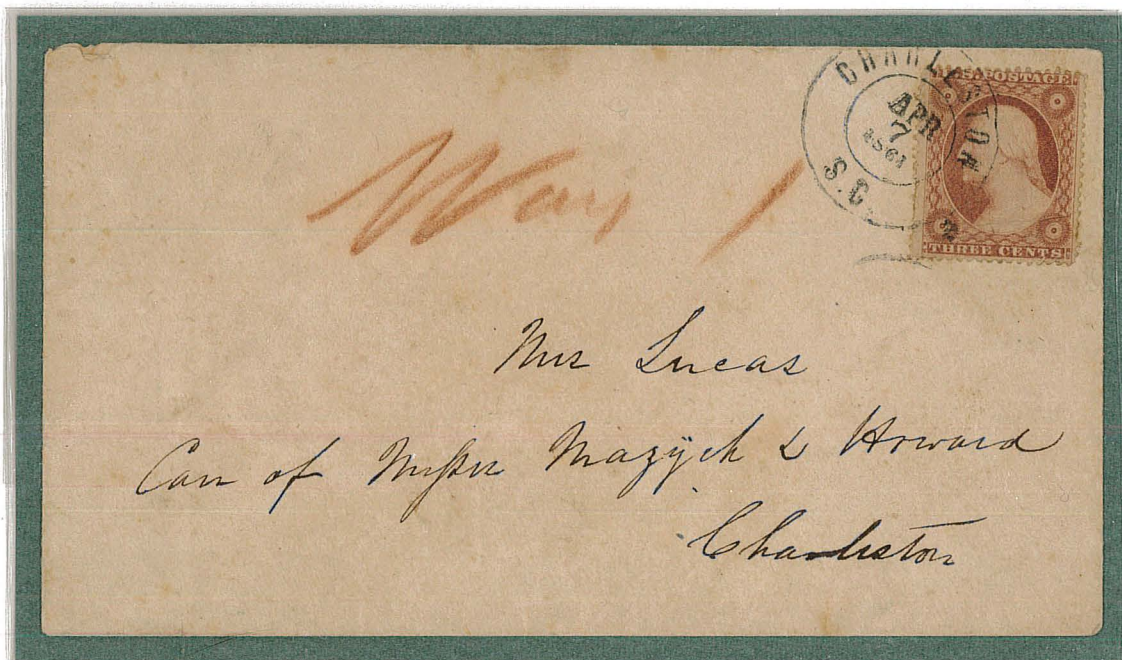 CHARLESTON
APR
7
1861
S.C.
U.S. POSTAGE
THREE CENTS
Way 1
Mrs Lucas
Care of Messrs Mazÿck & Howard
Charleston